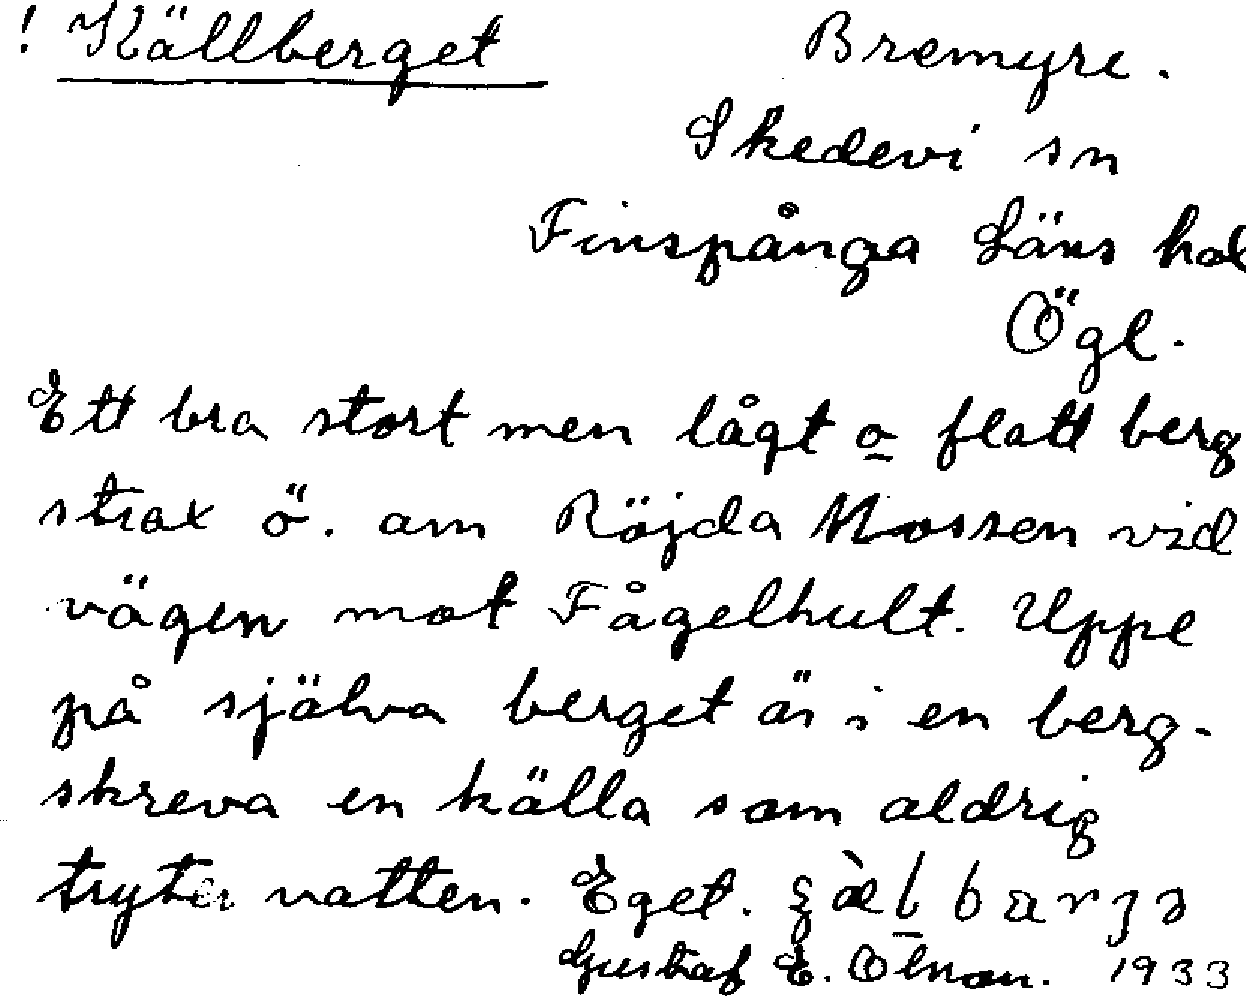 ! Källberget
Bremyre.
Skedevi sn
Finspånga Läns had
Ögl.
Ett bra stort men lågt o flatt berg
strax ö. om Röjda Mossen vid
vägen mot Fågelhult. Uppe
på själva berget är i en berg-
skreva en källa som aldrig
tryter vatten. Eget.
Gustaf E. Olson. 1933